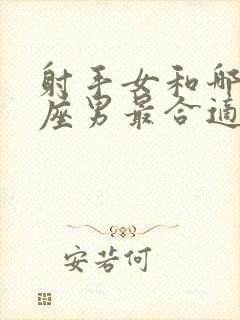 射手女和哪
座男最合适
安若何